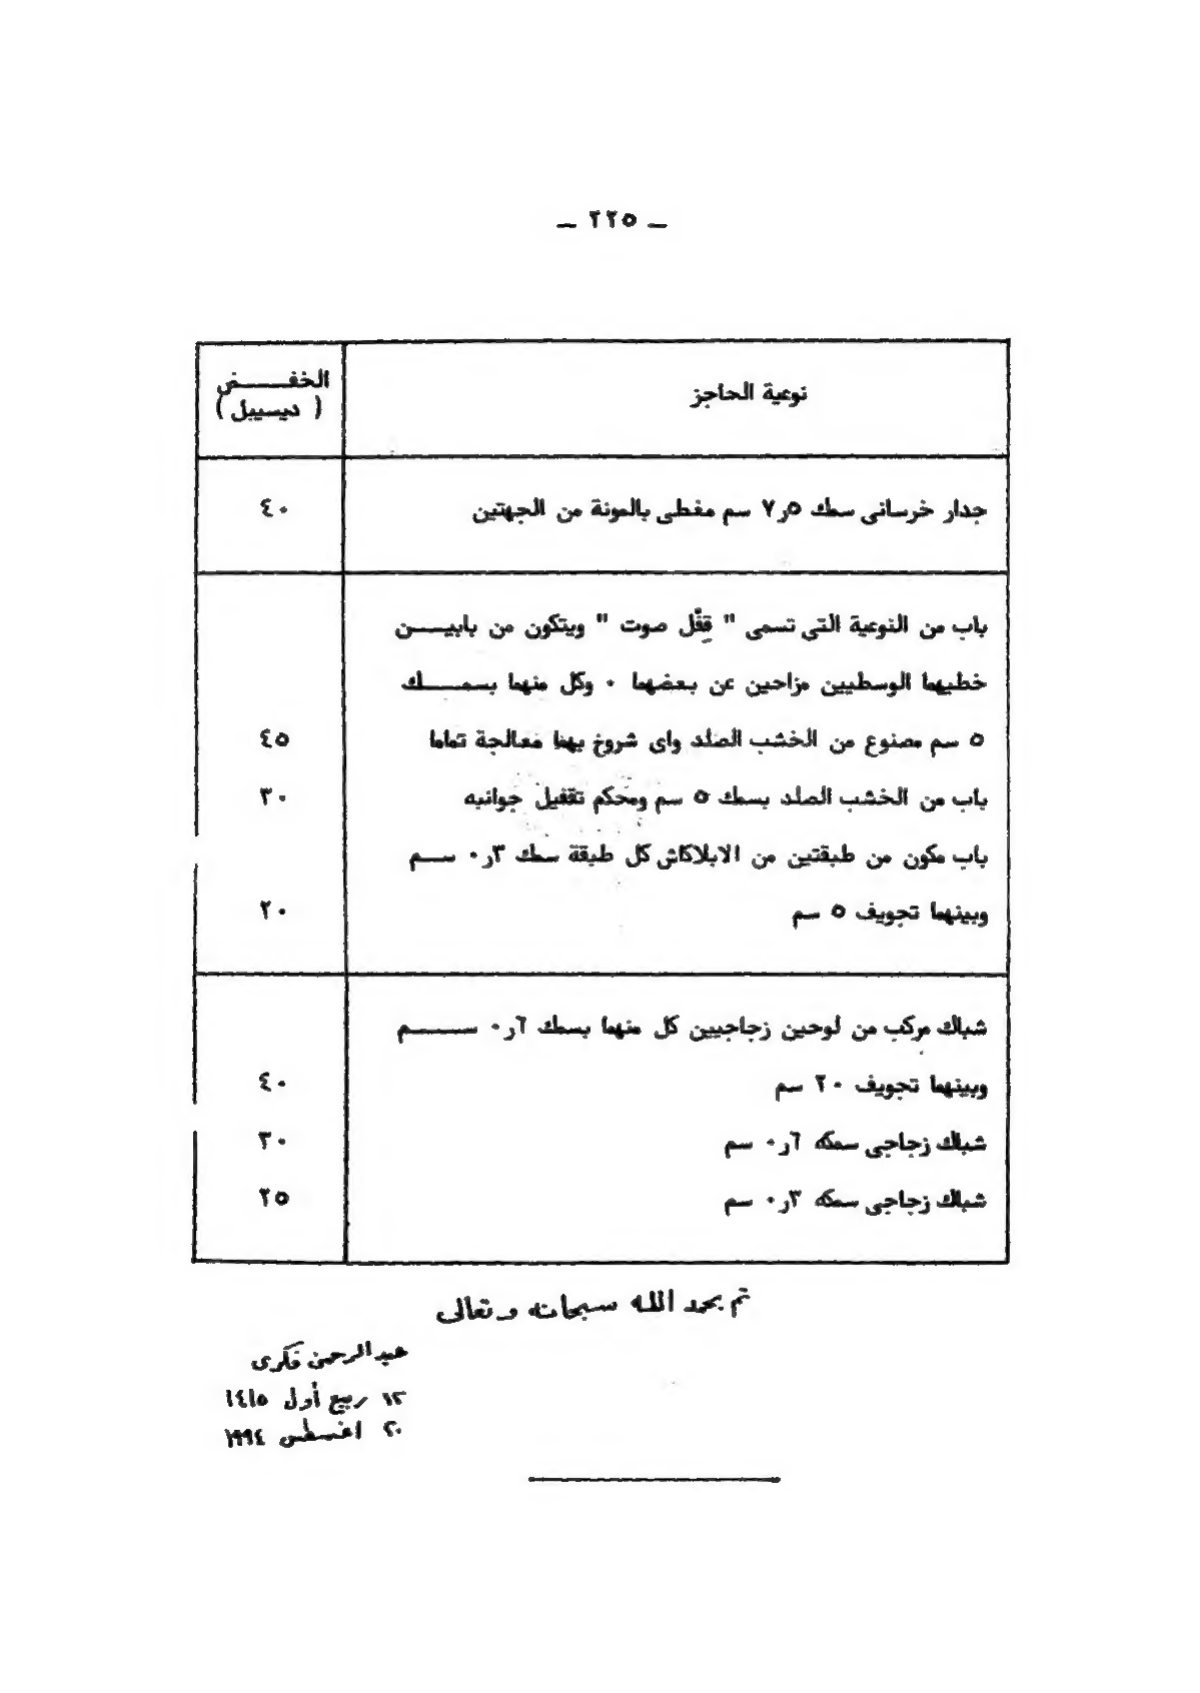 ـ ٢٢٥ ـ
نوعية الحاجز
الخفـــــض
( ديسيبل )
جدار خرسانى سمك ٥ر٧ سم مغطى بالمونة من الجهتين
٤٠
باب من النوعية التى تسمى " قِفْل صوت " ويتكون من بابيـــــن
خطيهما الوسطيين مزاحين عن بعضهما ٠ وكل منهما بسمـــــك
٥ سم مصنوع من الخشب الصلد واى شروخ بهما معالجة تماما
٤٥
باب من الخشب الصلد بسمك ٥ سم ومحكم تقفيل جوانبه
٣٠
باب مكون من طبقتين من الابلاكاش كل طبقة سمك ٣ر٠ ســـم
وبينهما تجويف ٥ سم
٢٠
شباك مركب من لوحين زجاجيين كل منهما بسمك ٦ر٠ ســـــم
وبينهما تجويف ٢٠ سم
٤٠
شباك زجاجى سمكه ٦ر٠ سم
٣٠
شباك زجاجى سمكه ٣ر٠ سم
٢٥
تم بحمد الله سبحانه وتعالى
عبد الرحمن فكرى
١٢ ربيع أول ١٤١٥
٢٠ اغسطس ١٩٩٤